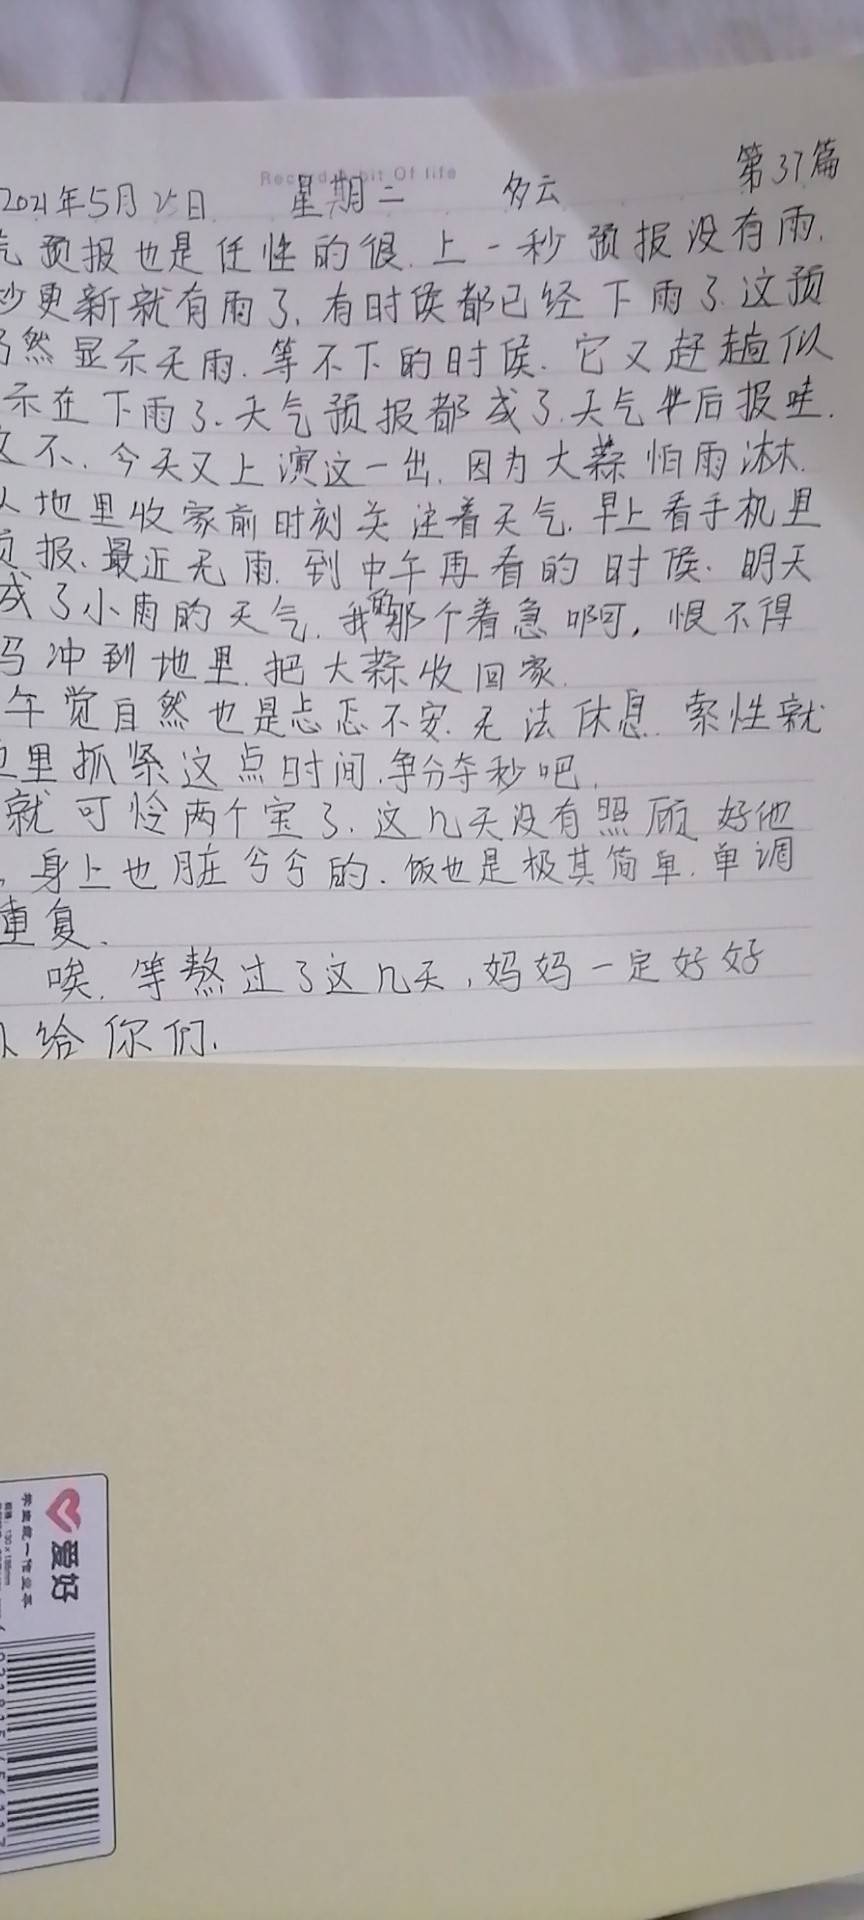 第37篇
Record A bit Of life
2021年5月25日 星期二 多云
预报也是任性的很.上一秒预报没有雨.
秒更新就有雨了.有时候都已经下雨了.这预
然显示无雨.等不下的时候.它又赶趟似
示在下雨了.天气预报都成了天气半后报哇.
不.今天又上演这一出.因为大蒜怕雨淋.
地里收家前时刻关注着天气.早上看手机里
报.最近无雨.到中午再看的时候.明天
成了小雨的天气.我的那个着急啊,恨不得
冲到地里.把大蒜收回家.
午觉自然也是忐忑不安.无法休息.索性就
里抓紧这点时间.争分夺秒吧.
就可怜两个宝了.这几天没有照顾好他
,身上也脏兮兮的.饭也是极其简单.单调
重复.
唉.等熬过了这几天,妈妈一定好好
给你们.
爱好